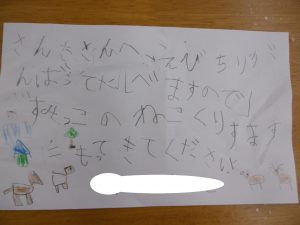 さんたさんへ えびちりが
んばってたしべますので
すみっこのねこくります
にもてきてください